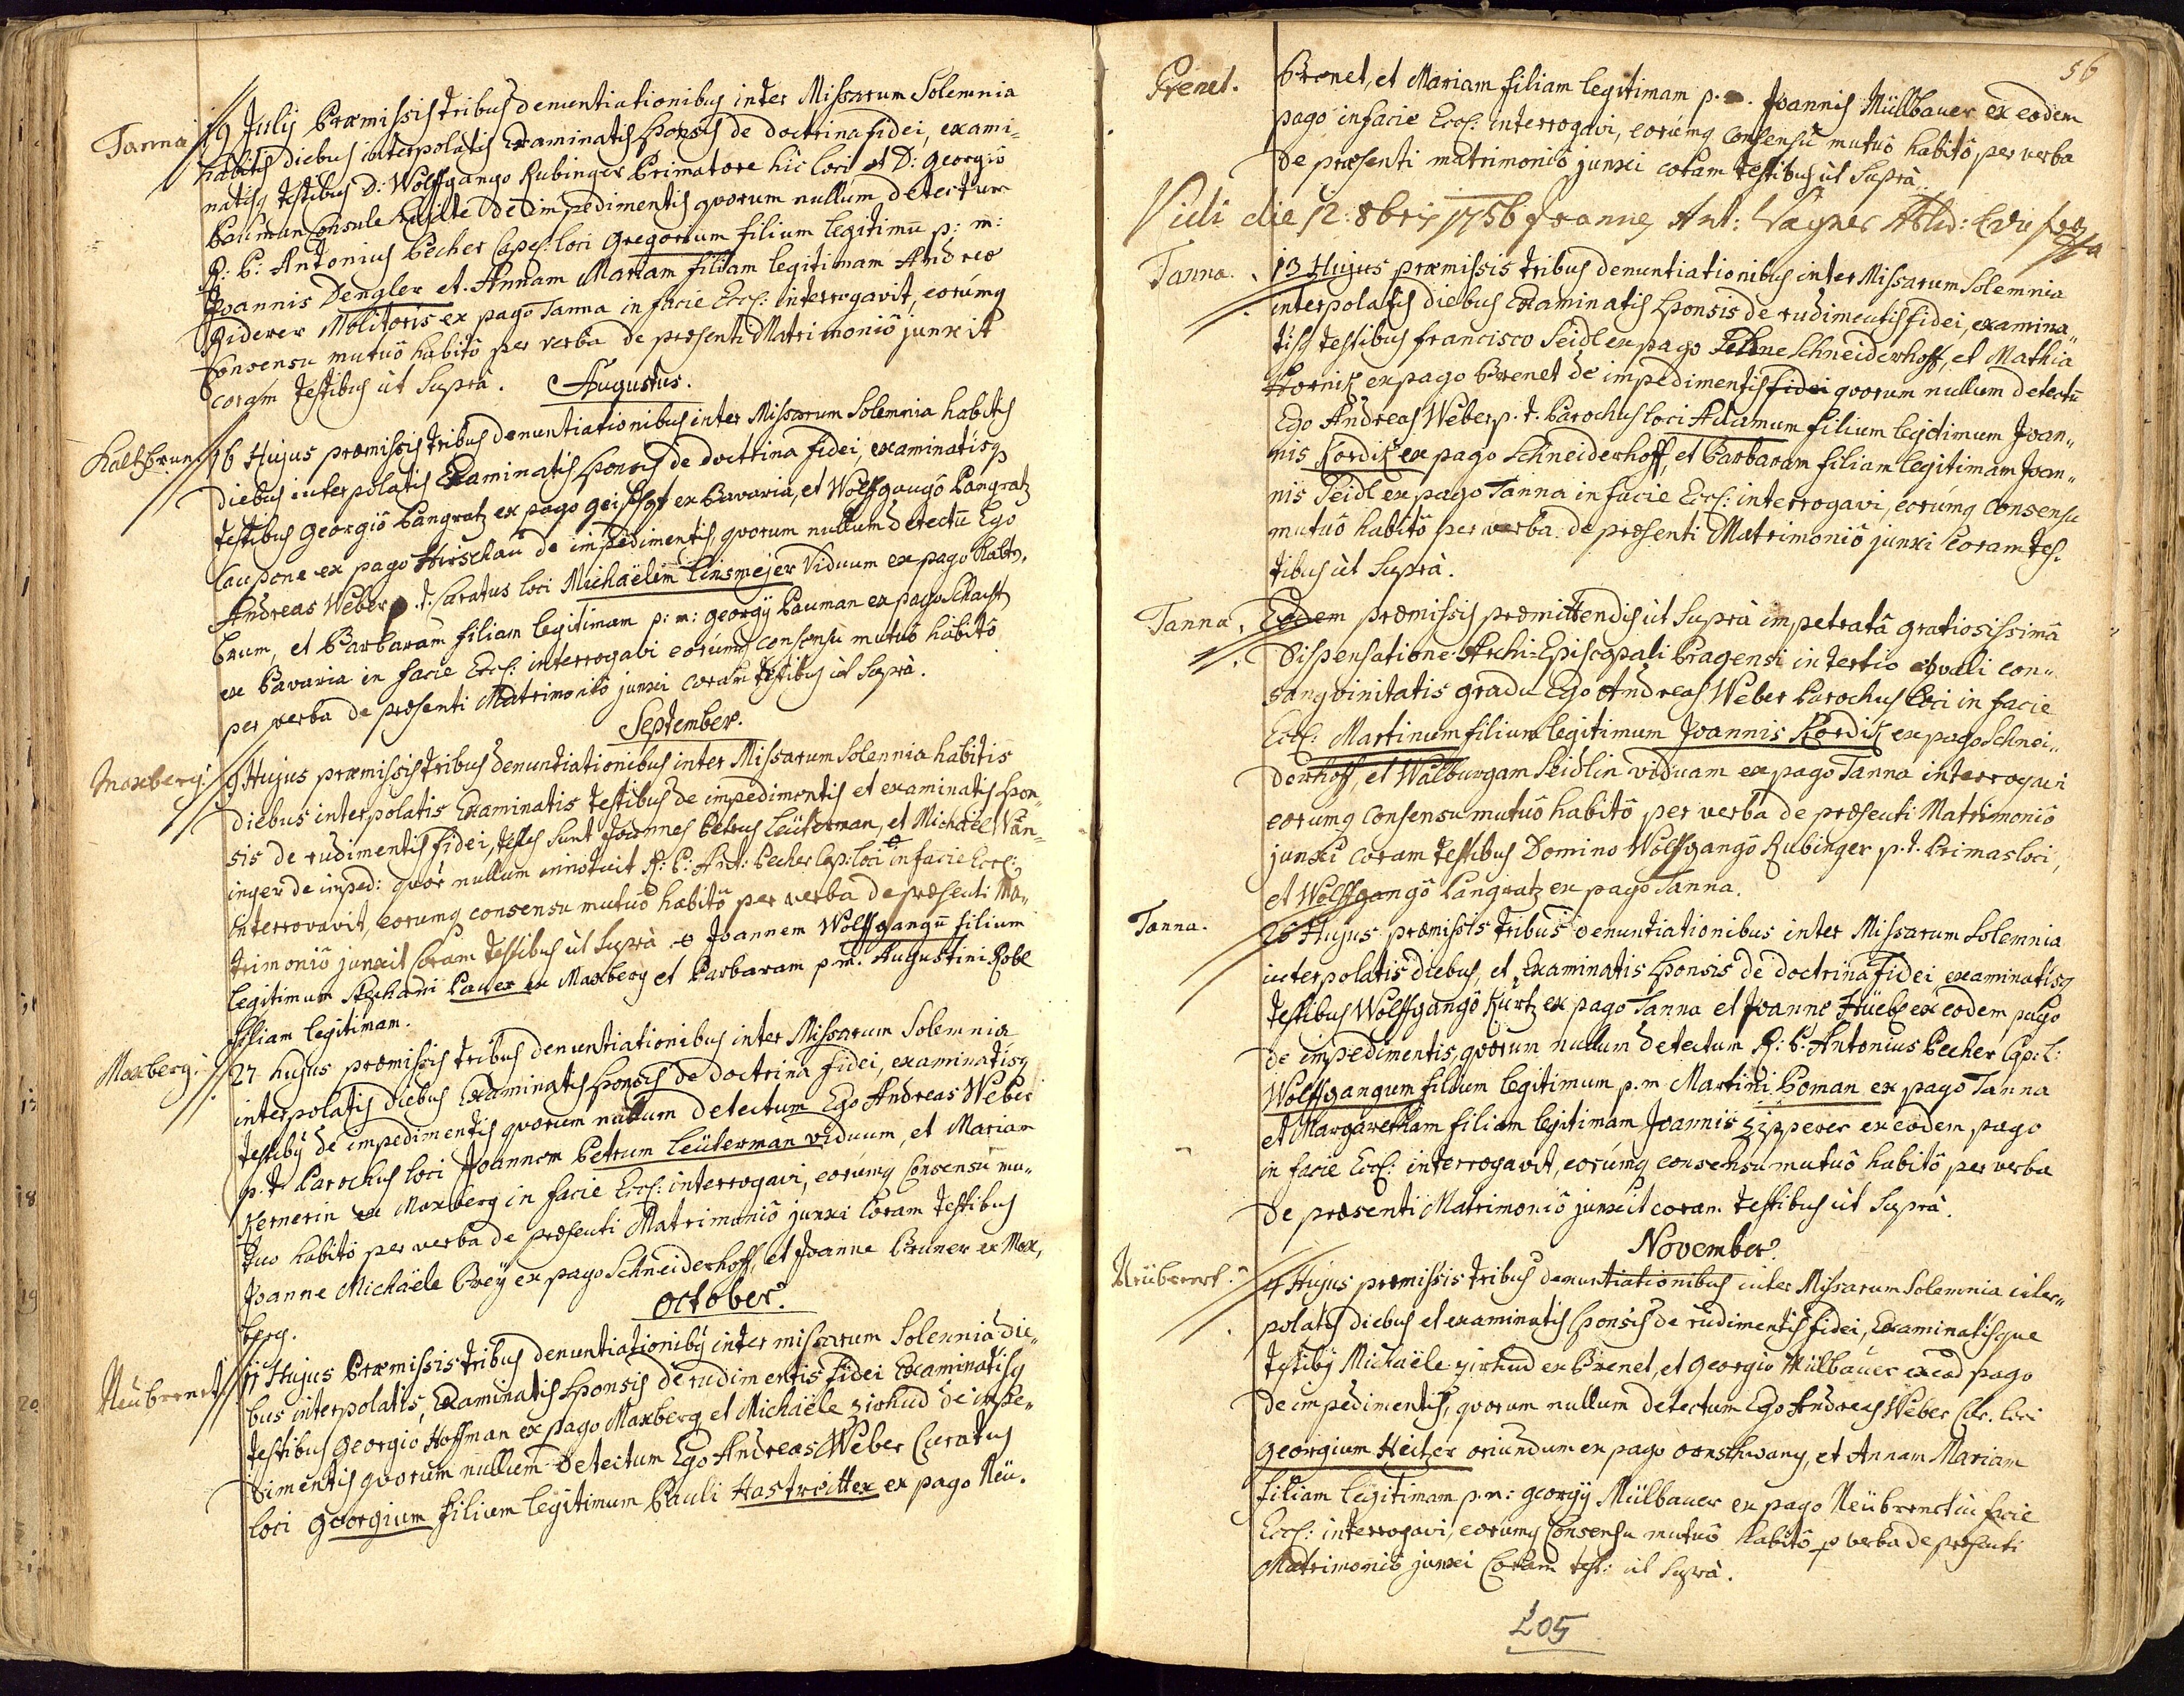 Tanna
19 Julij Præmissis tribus denuntiationibus inter Missarum Solemnia
habitis diebus interpolatis Examinatis Sponsis de doctrina fidei, exami=
natisq testibus D: Wolffgango Rubinger Primatore hic loci et D: Georgio
Bauman Consule de impedimentis quorum nullum detectum
R: P: Antonius Pecher Capel: loci Gregorium filium legitimũ p: m:
Joannis Dengler et Annam Mariam filiam legitimam Andreæ
Riderer Molitoris ex pago Tanna in facie Eccl: interrogavit, eorúmq
Consensu mutuô habitô per verba de præsenti Matrimoniô junxit
coram testibus ùt Suprà.
Augustus.
Kaltzbrun
16 Hujus præmissis tribus denuntiationibus inter Missarum Solemnia habitis
diebus interpolatis Examinatis Sponsis de doctrina fidei, examinatisq
testibus Georgiô Pangratz ex pago ex Bavaria, et Wolffgangô Pangratz
Caupone ex pago Hirschau de impedimentis quorum nullum detectũ Ego
Andreas Weber p.t. Curatus loci Michaëlem Linsmejer Viduum ex pago Kaltz„
brun, et Barbaram filiam legitimam p: m: Georgij Bauman ex pago Schacht
ex Bavaria in facie Eccl: interrogavi eorúmq consensu mutuô habitô
per verba de præsenti Matrimoniô junxi coram testibus ùt Suprà.
September.
Maxberg.
9 Hujus præmissis tribus denuntiationibus inter Missarum Solennia habitis
diebus interpolatis Examinatis testibus de impedimentis et examinatis Spon=
sis de rudimentis fidei, testes sunt Joannes Petrus Leüterman, et Michaël Wän=
inger de imped: quôr nullum innotuit R: P: Ant: Pecher Cap: loci in facie Eccl:
interrovavit, eorumq consensu mutuô habitô per verba de præsenti Ma„
trimoniô junxit Coram testibus ùt Suprà Joannem Wolffgangũ filium
legitimum Stephani Pauer ex Maxberg et Barbaram p.m. Augustini Robl
filiam legitimam.
Maxberg.
27 hujus præmissis tribus denuntiationibus inter Missarum Solemnia
interpolatis diebus Examinatis Sponsis de doctrina fidei, examinatisq
testibq de impedimentis quorum nullum detectum Ego Andreas Weber
p.t. Parochus loci Joannem Petrum Leüterman viduum, et Mariam
Kernerin ex Maxberg in facie Eccl: interrogavi, eorúmq Consensu mu„
tuo habito per verba de præsenti Matrimoniô junxi Coram testibus
Joanne Michaële Preÿ ex pago Schneiderhoff, et Joanne Bruner ex Max„
berg.
October.
Neübrenet
11 Hujus Præmissis tribus denuntiationibq inter missarum Solennia die„
bus interpolatis, Examinatis Sponsis de rudimentis fidei Examinatisq
testibus Georgio Hoffman ex pago Maxberg et Michaële zirhud de impe„
dimentis quorum nullum detectum Ego Andreas Weber Curatus
loci Georgium filium legitimum Pauli Hastreitter ex pago Neü.
56
Prenet.
Brenet, et Mariam filiam legitimam p.m. Joannis Müllbauer ex eodem
pago in facie Eccl: interrogavi, eorúmq consensu mutuô habitô per verba
de præsenti matrimoniô junxi coram testibus ùt Suprà.
Vidi die 12: 8bris 1756 Joannes Ant: Wagner
Tanna.
13 Hujus præmissis tribus denuntiationibus inter Missarum Solemnia
interpolatis diebus Examinatis Sponsis de rudimentis fidei, examina„
tisq testibus Francisco Seidl ex pago Schneiderhoff, et Mathia
Hornik ex pago Brenet de impedimentis fidei quorum nullum detectũ
Ego Andreas Weber p.t. Parochus loci Adamum filium legitimum Joan„
nis Kordik ex pago Schneiderhoff, et Barbaram filiam legitimam Joan„
nis Seidl ex pago Tanna in facie Eccl: interrogavi, eorúmq Consensu
mutuô habitô per verba de præsenti Matrimoniô junxi Coram tes„
tibus ùt Suprà.
Tanna.
Eodem præmissis præmittendis ùt Suprà impetratâ gratiosissimâ
Dispensatione Archi=Episcopali Pragensi in tertio æquali con„
sangvinitatis gradu Ego Andreas Weber Parochus loci in facie
Eccl: Martinum filium legitimum Joannis Kordik ex pago Schnei„
derhoff, et Walburgam Seidlin viduam ex pago Tanna interrogavi
eorumq consensu mutuô habitô per verba de præsenti Matrimoniô
junxi coram testibus Domino Wolffgangô Rubinger p.t. Primas loci,
et Wolffgangô Pangratz ex pago Tanna.
Tanna.
26 Hujus præmissis tribus denuntiationibus inter Missarum Solemnia
interpolatis diebus, et Examinatis Sponsis de doctrina fidei examinatisq
testibus Wolffgangô Kurtz ex pago Tanna et Joanne Hüebl ex eodem pago
de impedimentis, quorum nullum detectum R: P: Antonius Pecher Cap: L:
Wolffgangum filium legitimum p.m Martini Boman ex pago Tanna
et Margaretham filiam legitimam Joannis Zipperer ex eodem pago
in facie Eccl: interrogavit, eorúmq consensu mutuô habitô per verba
de præsenti Matrimoniô junxit coram testibus ùt Suprà.
November.
Neübrenet.
4 Hujus præmissis tribus denuntiationibus inter Missarum Solemnia inter„
polatis diebus et examinatis Sponsis de rudimentis fidei, Examinatisque
testibq Michaële zirhud ex Brenet, et Georgio Mülbauer ex eod pago
de impedimentis, quorum nullum detectum Ego Andreas Weber Cur. loci
Georgium Heitzer oriundum ex pago et Annam Mariam
filiam legitimam p.m: Georgij Mülbauer ex pago Neübrenet in facie
Eccl: interrogavi, eorúmq Consensu mutuô habitô p verba de præsenti
Matrimoniô junxi Coram test: ùt Suprà.
205